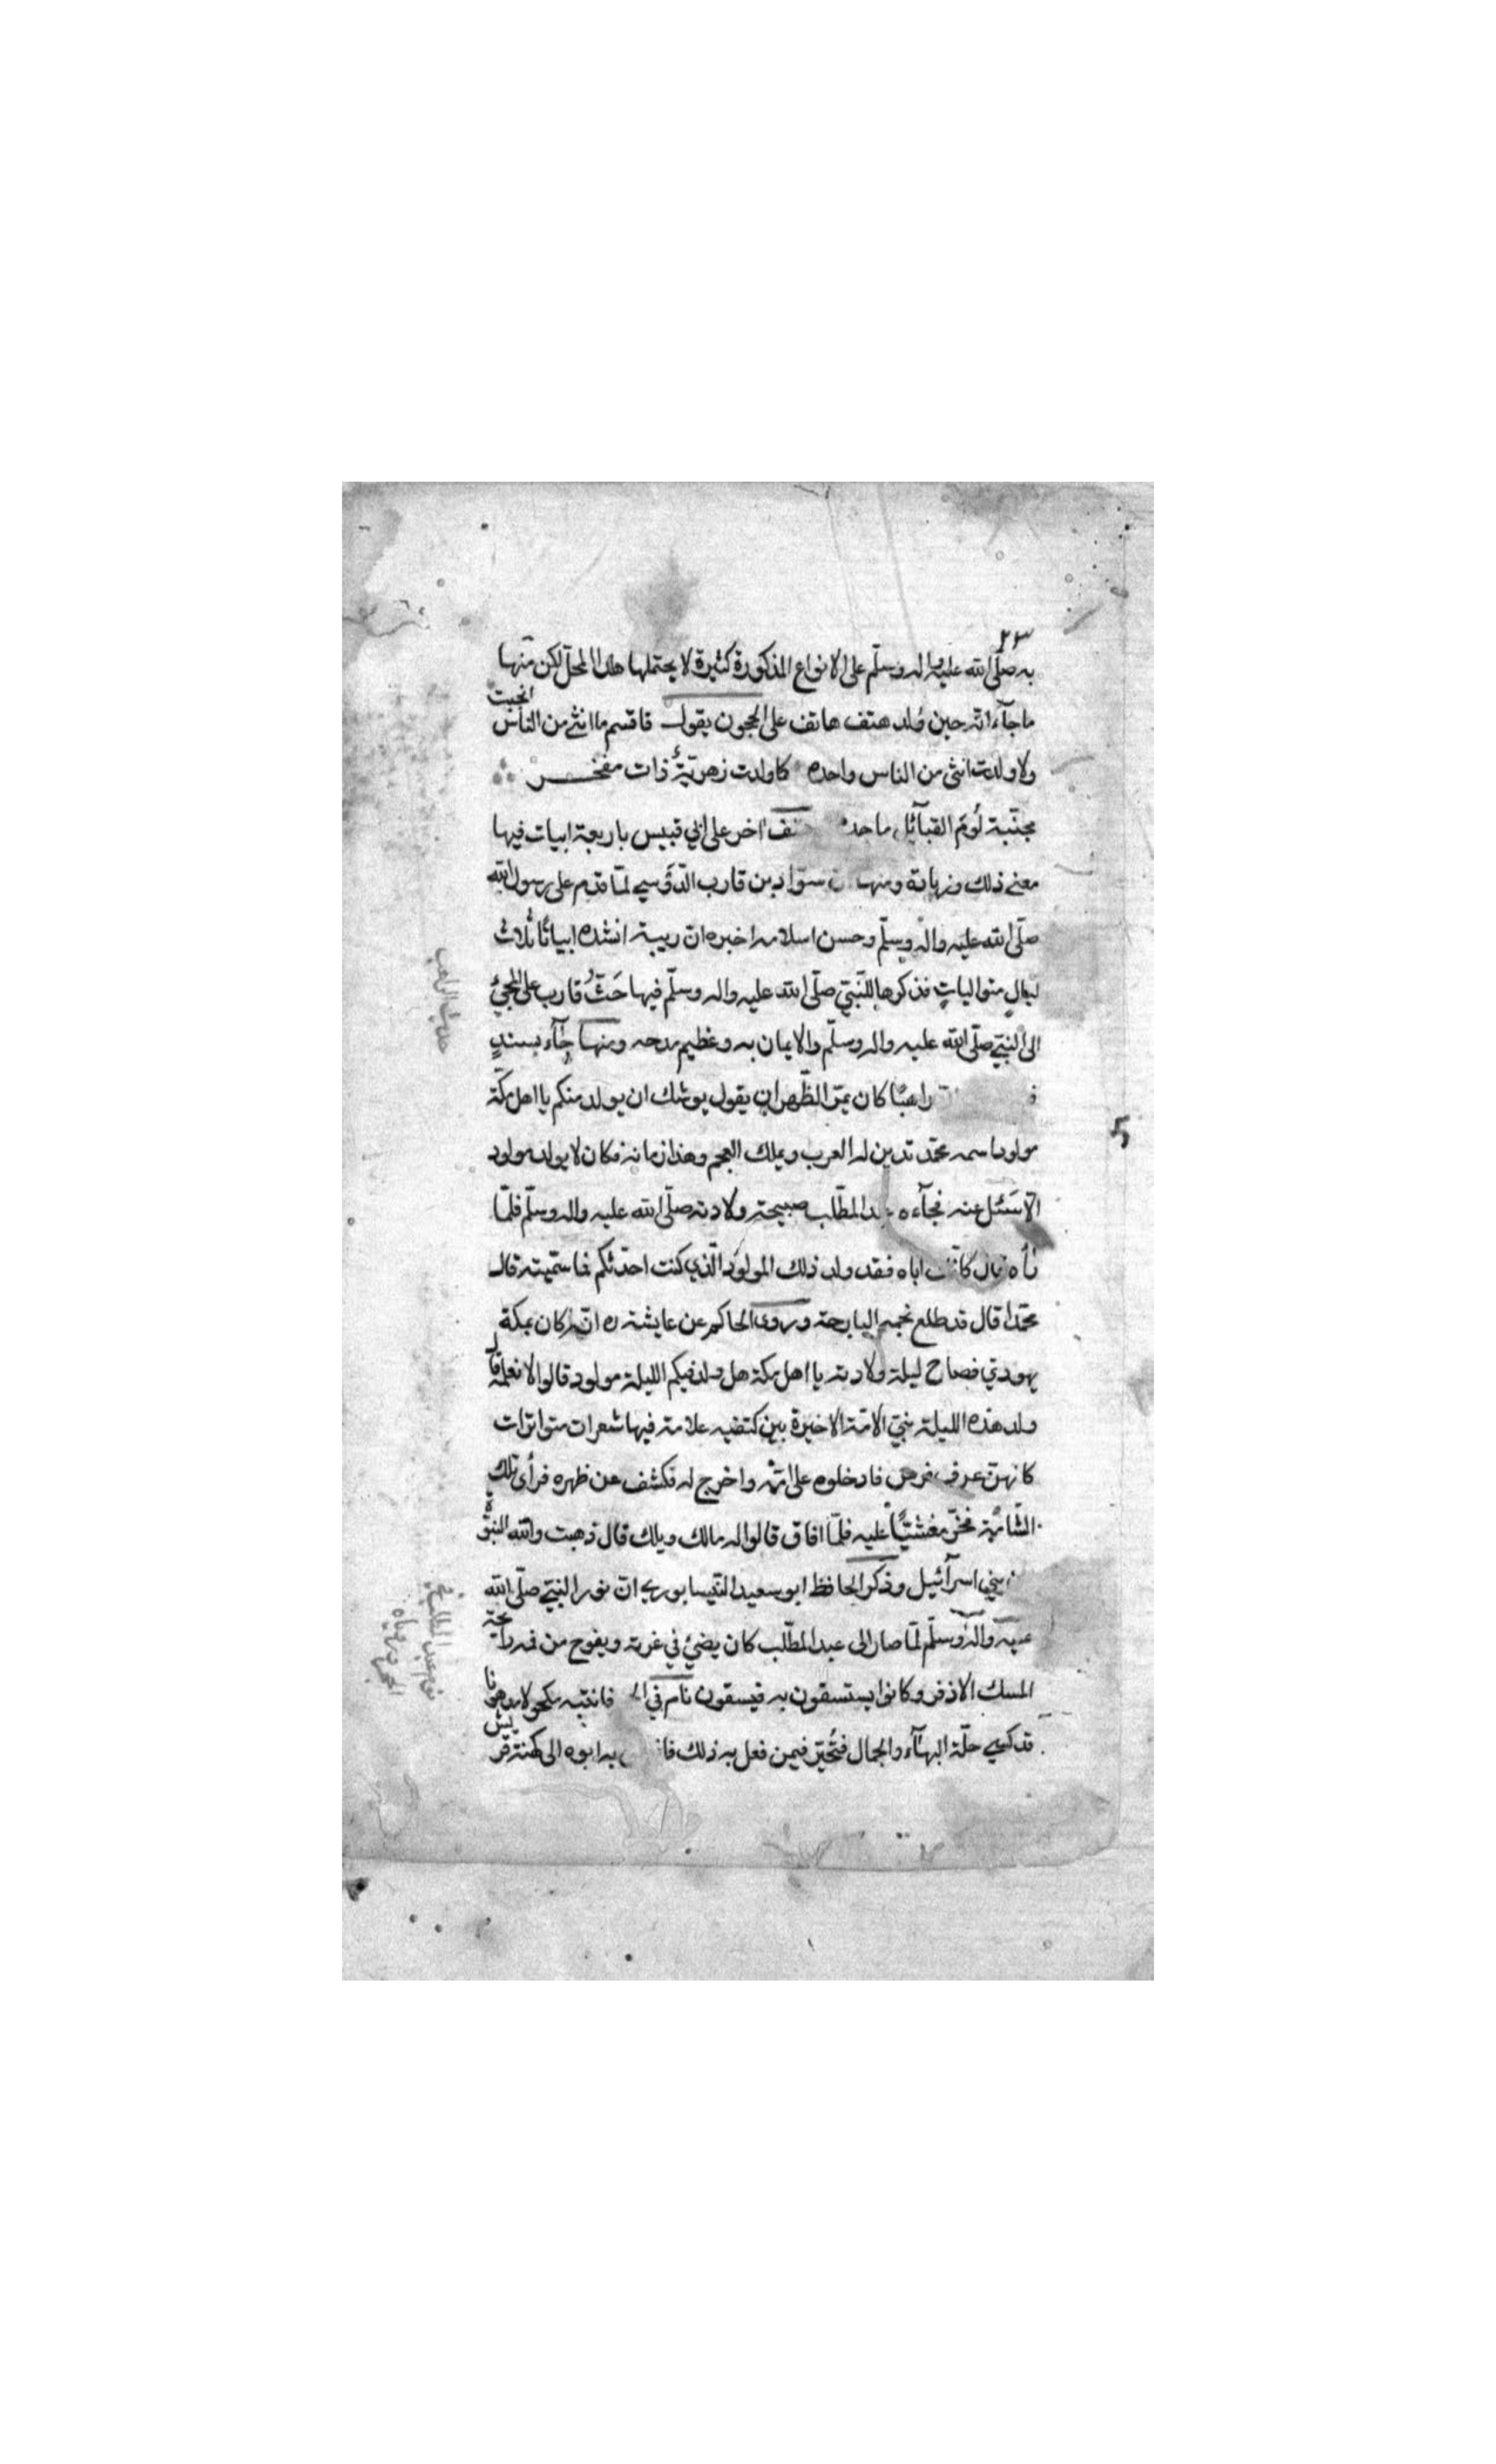 ٢٣
به صلّى الله عليه واله وسلّم على الانواع المذكورة كثيرة لا يحتملها هذا المحل لكن منها
ماجآء انّه حين ولد هتف هاتف على الحجون يقول فاقسم ما انثى من الناس انجبت
ولا ولدت انثى من الناس واحده كما ولدت زهريّة ذات مفخر
مجنّبة لُوم القبآئل ماجده اخر على ابي قبيس باربعة ابيات فيها
معنى ذلك وزيادة ومنها سواد بن قارب الدّوسي لمّا قدم على رسول الله
صلّى الله عليه واله وسلّم وحسن اسلامه اخبره انّ ربيه انشده ابياتًا ثلاث
ليالٍ متوالياتٍ فذكرها للنّبيّ صلّى الله عليه واله وسلّم فيها حَثّ قارب على المجئ
الى النبيّ صلّى الله عليه واله وسلّم والايمان به وعظيم مدحه ومنها جآء بسندٍ
راهبًا كان بمرّ الظّهران يقول يوشك ان يولد منكم يا اهل مكّة
مولود اسمه محمّد تدين له العرب ويملك العجم وهذا زمانه فكان لا يولد مولود
الّا سَئل عنه فجآءه المطّلب صبيحة ولادته صلّى الله عليه واله وسلّم فلمّا
اباه فقد ولد ذلك المولود الّذي كنت احدّثكم فما سمّيته قال
محمّدا قال قد طلع نجمه البارحة وروى الحاكم عن عايشة ره انّه كان بمكة
يهودي فصاح ليلة ولادته يا اهل مكة هل ولد فيكم الليلة مولود قالوا لا نعلمه قال
ولد هذه الليلة نبيّ الامّة الاخيرة بين كتفيه علامة فيها شعرات متواترات
كانهنّ عرف فرس فادخلوه على امّه واخرج له فكشف عن ظهره فرأى تلك
الشّامة فخرّ مغشيًّا عليه فلمّا افاق قالوا له مالك ويلك قال ذهبت والله النبوّة
من بني اسرآئيل وذكر الحافظ ابو سعيد النّيسابوري انّ نور النبيّ صلّى الله
عليه واله وسلّم لمّا صار الى عبد المطّلب كان يضئ في غرته ويفوح من فمه رائحة
المسك الاذفر وكانوا يستسقون به فيسقون نام في فانتبه مكحولا مدهونا
قد كسي حلّة البهآء والجمال فتُحيّر فيمن فعل به ذلك به ابوه الى كهنة قريش
حديث الراهب